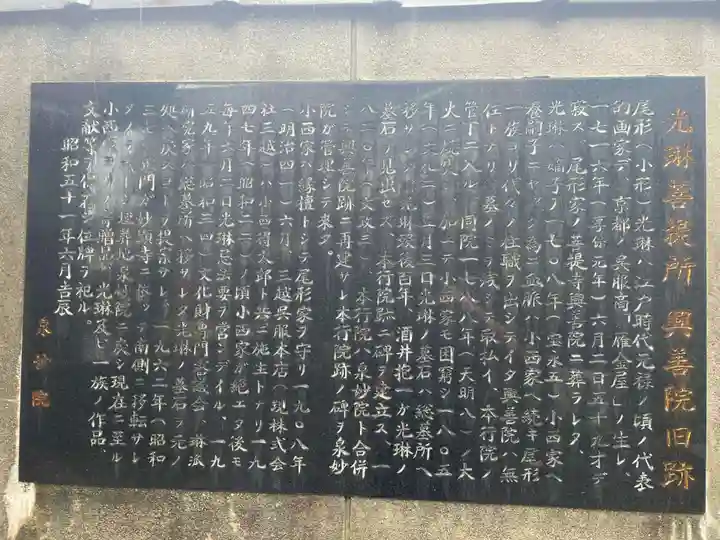 光琳菩提所 興善院旧跡
尾形(小形)光琳ハ江戸時代元禄ノ頃ノ代表
的画家デ 京都ノ呉服商「雁金屋」ノ生レ、
一七一六年(享保元年)六月二日五十九才デ
寂ス。尾形家ノ菩提寺興善院ニ葬ラレタ。
光琳ハ 子ヲ一七〇八年(宝永五)小西家ヘ
養嗣子ニヤッタ為ニ血脈ハ小西家ヘ続キ尾形
一族ヨリ代々ノ住職ヲ出シテイタ興善院ハ無
住トナリ墓ノミヲ残シテ取払イ、本行院ノ
管下ニ入ル。同院一七八八年(天明八)ノ大
火ニ焼失シ加エテ小西家モ困窮シ一八〇五
年(文化二)二月三日光琳ノ墓石ハ総墓所ヘ
移サレ 光琳歿後百年、酒井抱一が光琳ノ
墓石ノ見出セズ 本行院跡ニ碑ヲ建立ス、一
八二〇年(文政三) 本行院ハ泉妙院ト合併
シテ興善院跡ニ再建サレ本行院跡ノ碑ヲ泉妙
院が管理シテ来タ。
小西家ハ縁檀トシテ尾形家ヲ守リ一九〇八年
(明治四一)六月 三越呉服本店(現株式会
社三越)ハ小西彷太郎ト共ニ施主トナリ一九
四七年(昭和二二)頃小西家が絶エタ後モ
毎年六月二日光琳忌法要ヲ営ンデイル、一九
五九年(昭和三四)文化財専門審議会、琳派
研究家ハ総墓所ヘ移サレタ光琳ノ墓石ヲ元ノ
処ヘ戻スコトヲ提案サレ、一九六二年(昭和
三七) 門が妙顕寺ニ依ッテ南側ニ移転サレ
埋葬地泉妙院ニ戻シ現在ニ至ル
小西家 贈品、光琳及ビ一族ノ作品、
文献等ヲ 位牌ヲ祀ル。
昭和五十一年六月吉辰
泉妙院